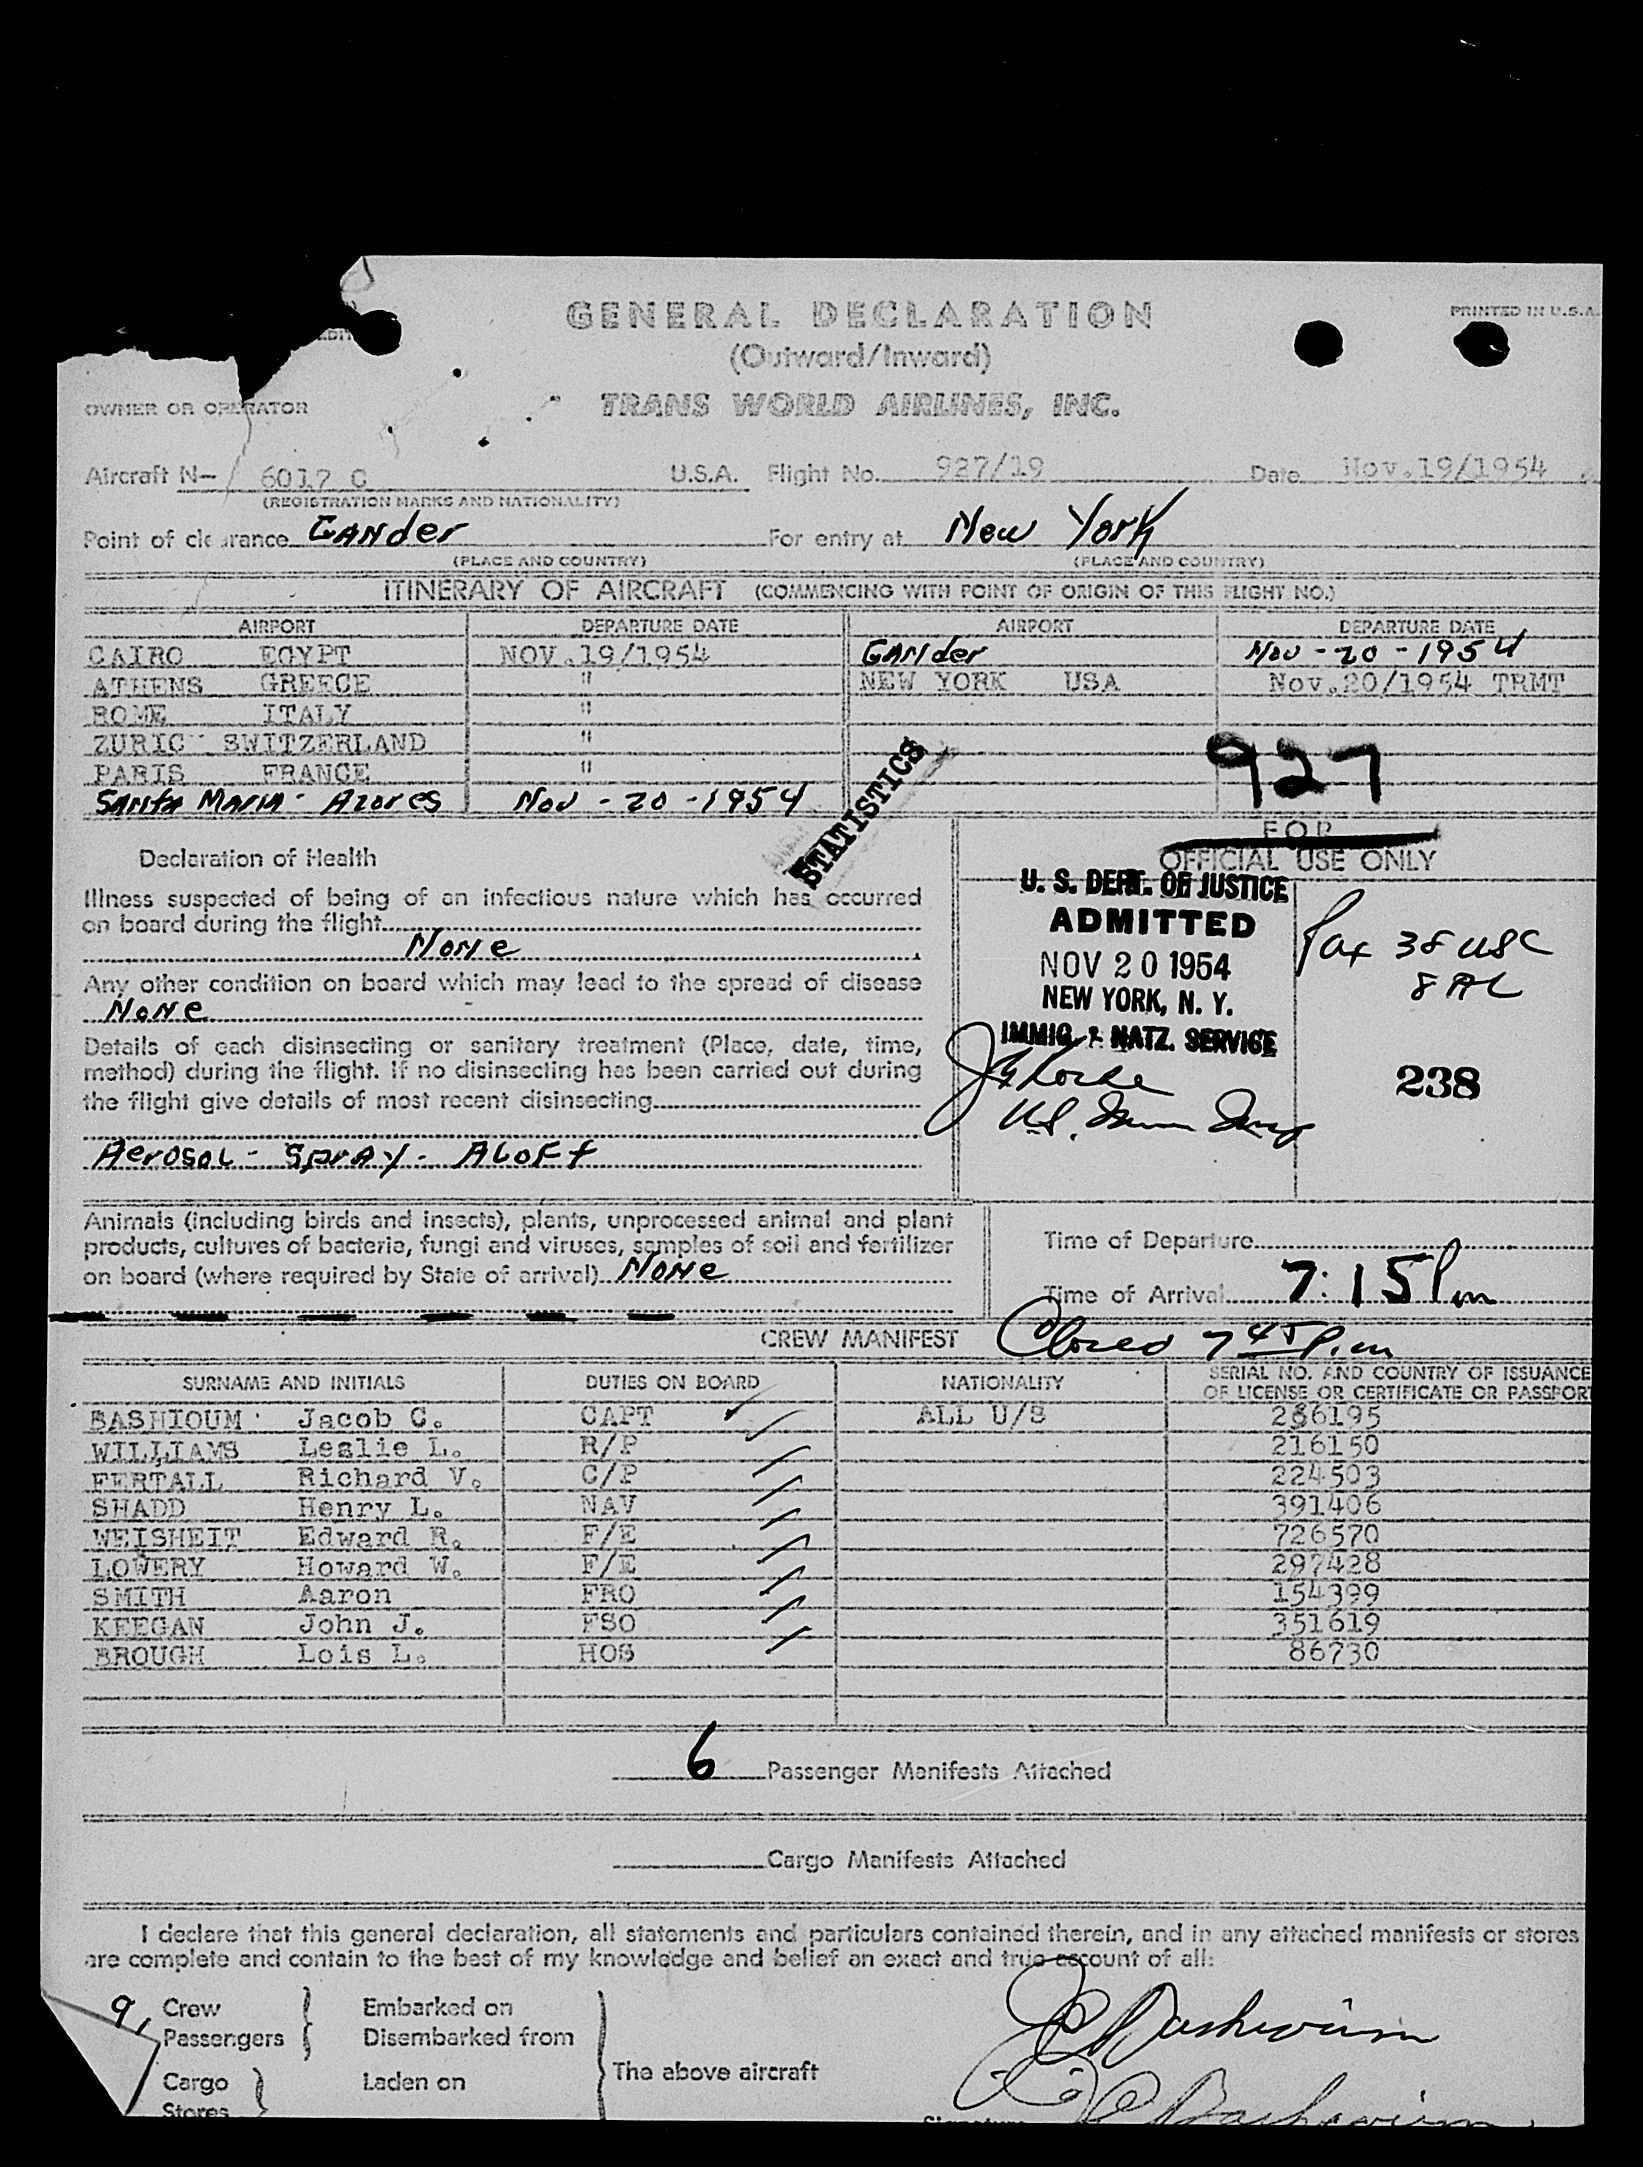 GENERAL DECLARATION
PRINTED IN U.S.A.
(Outward/Inward)
OWNER OR OPERATOR
TRANS WORLD AIRLINES, INC.
Aircraft N- 6017 C U.S.A. Flight No. 927/19 Date Nov.19/1954
(REGISTRATION MARKS AND NATIONALITY)
Point of clearance Gander For entry at New York
(PLACE AND COUNTRY) (PLACE AND COUNTRY)
ITINERARY OF AIRCRAFT (COMMENCING WITH POINT OF ORIGIN OF THIS FLIGHT NO.)
AIRPORT DEPARTURE DATE AIRPORT DEPARTURE DATE
CAIRO EGYPT NOV.19/1954 Gander Nov-20-1954
ATHENS GREECE " NEW YORK USA Nov.20/1954 TRMT
ROME ITALY "
ZURIC SWITZERLAND "
PARIS FRANCE "
927
Santa Maria - Azores Nov-20-1954
STATISTICS
FOR
OFFICIAL USE ONLY
Declaration of Health
Illness suspected of being of an infectious nature which has occurred
on board during the flight
None
Any other condition on board which may lead to the spread of disease
None
Details of each disinsecting or sanitary treatment (Place, date, time,
method) during the flight. If no disinsecting has been carried out during
the flight give details of most recent disinsecting
Aerosol - Spray - Aloft
U. S. DEPT. OF JUSTICE
ADMITTED
NOV 20 1954
NEW YORK, N. Y.
IMMIG. & NATZ. SERVICE
Pax 38 USC
8 AL
238
Animals (including birds and insects), plants, unprocessed animal and plant
products, cultures of bacteria, fungi and viruses, samples of soil and fertilizer
on board (where required by State of arrival) None
Time of Departure
Time of Arrival 7:15 Pm
CREW MANIFEST
Closed 7 45 P.m
SURNAME AND INITIALS DUTIES ON BOARD NATIONALITY SERIAL NO. AND COUNTRY OF ISSUANCE
OF LICENSE OR CERTIFICATE OR PASSPORT
BASHIOUM Jacob C. CAPT ALL U/S 286195
WILLIAMS Leslie L. R/P 216150
FERTALL Richard V. C/P 224503
SHADD Henry L. NAV 391406
WEISHEIT Edward R. F/E 726570
LOWERY Howard W. F/E 297428
SMITH Aaron FRO 154399
KEEGAN John J. FSO 351619
BROUGH Lois L. HOS 86730
6 Passenger Manifests Attached
Cargo Manifests Attached
I declare that this general declaration, all statements and particulars contained therein, and in any attached manifests or stores
are complete and contain to the best of my knowledge and belief an exact and true account of all:
9 Crew Embarked on
Passengers Disembarked from
The above aircraft
Cargo Laden on
Stores
JC Bashioum
JC Bashioum